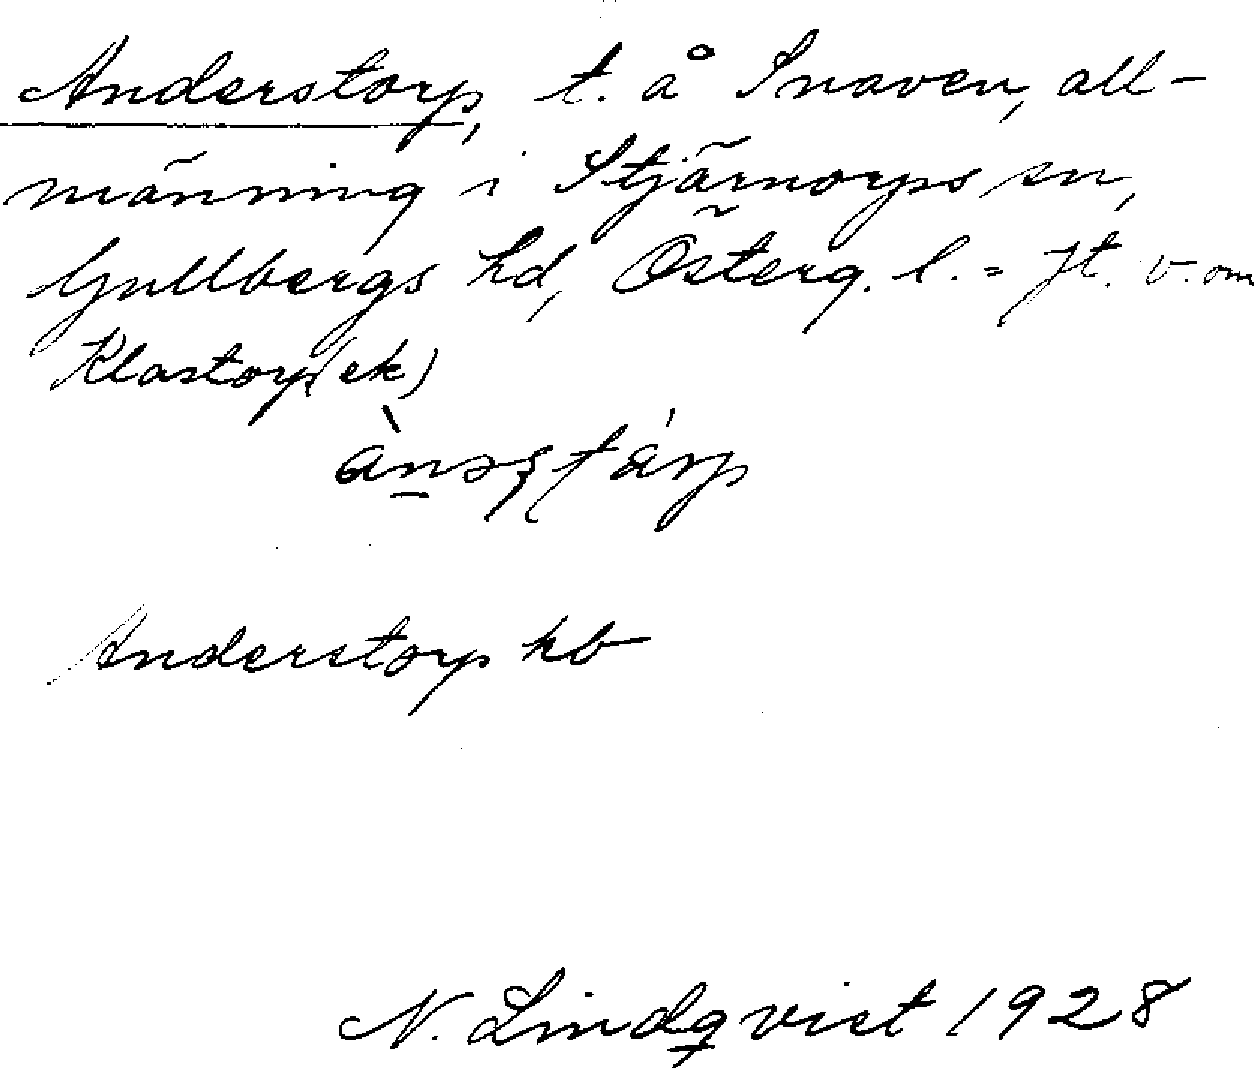 Anderstorp, t. å Snaven, all-
männing i Stjärnorps sn,
Gullbergs hd, Österg. l. = Jt. v. om
Klastorp (ek)
Anderstorp hb
N. Lindqvist 1928